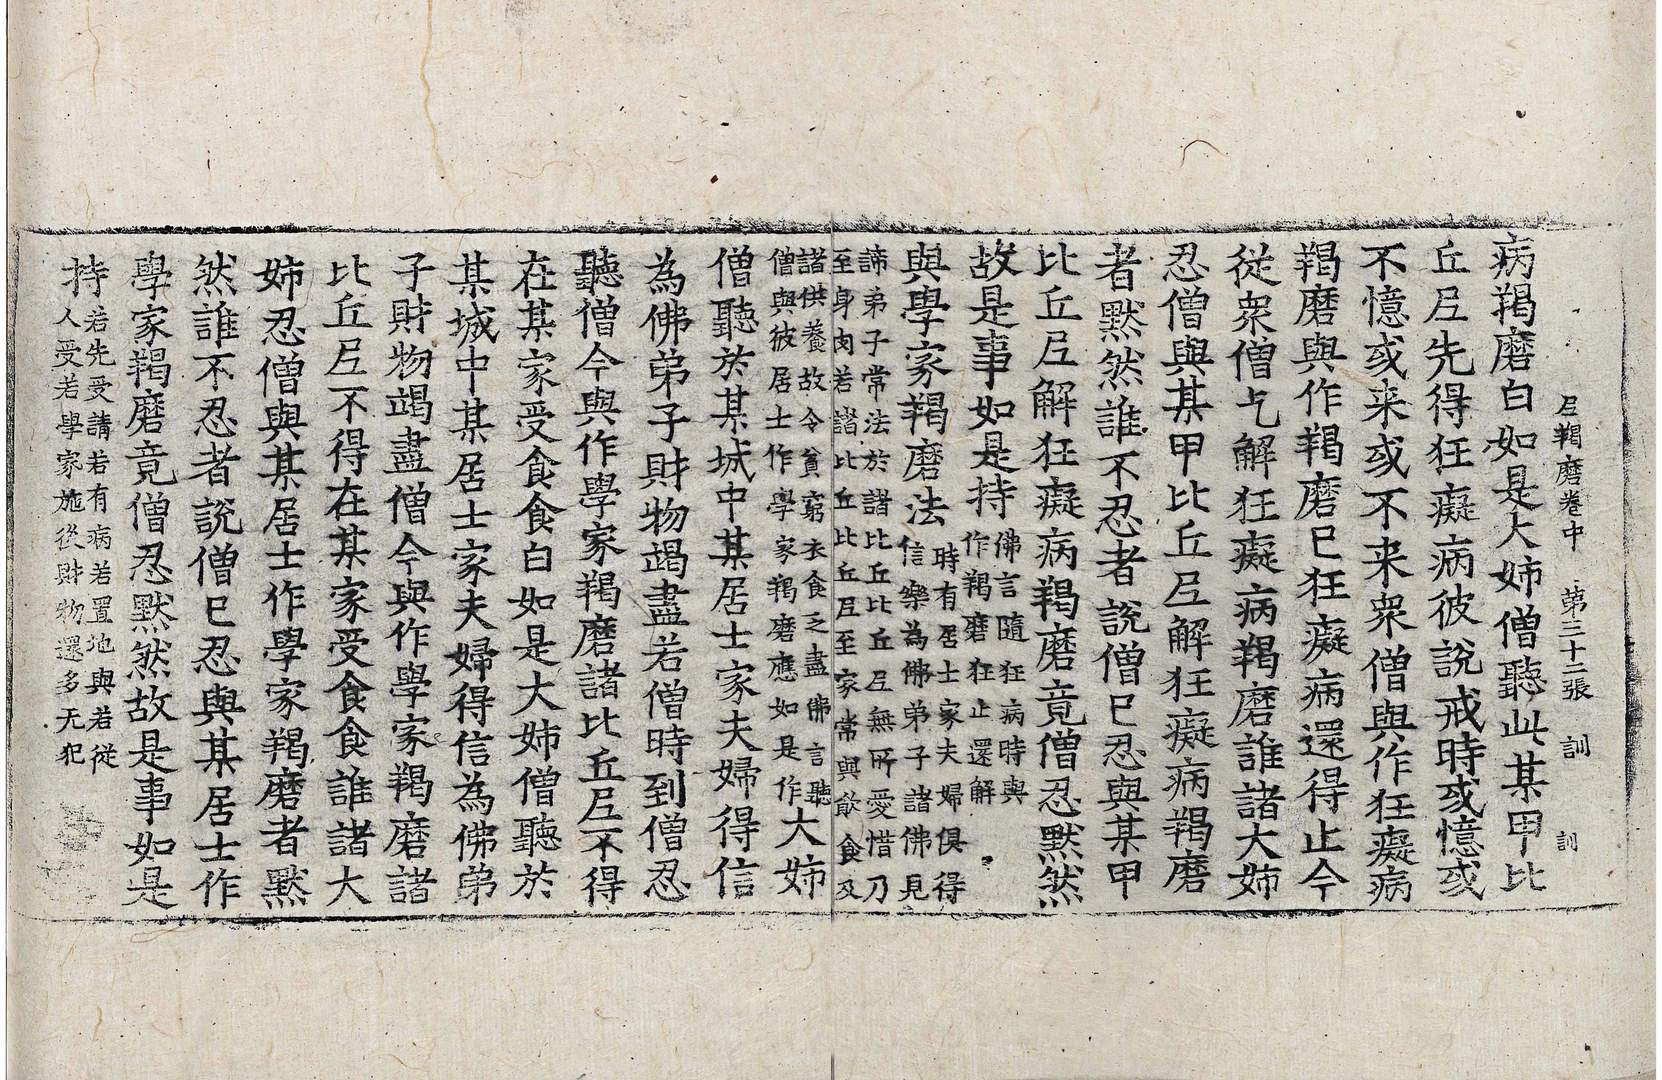 尼羯磨卷中 第三十二張 訓 訓
病羯磨白如是大姉僧聽此某甲比
丘尼先得狂癡病彼說戒時或憶或
不憶或来或不来衆僧與作狂癡病
羯磨與作羯磨已狂癡病還得止今
從衆僧乞解狂癡病羯磨誰諸大姉
忍僧與某甲比丘尼解狂癡病羯磨
者默然誰不忍者說僧已忍與某甲
比丘尼解狂癡病羯磨竟僧忍默然
故是事如是持
佛言隨狂病時與
作羯磨狂止還解
與學家羯磨法
時有居士家夫婦俱得
信樂為佛弟子諸佛見
諦弟子常法於諸比丘比丘尼無所愛惜乃
至身肉若諸比丘比丘尼至家常與飲食及
諸供養故令貧窮衣食乏盡佛言聽
僧與彼居士作學家羯磨應如是作
大姉
僧聽於某城中某居士家夫婦得信
為佛弟子財物竭盡若僧時到僧忍
聽僧今與作學家羯磨諸比丘尼不得
在某家受食食白如是大姉僧聽於
某城中某居士家夫婦得信為佛弟
子財物竭盡僧今與作學家羯磨諸
比丘尼不得在某家受食食誰諸大
姉忍僧與某居士作學家羯磨者默
然誰不忍者說僧已忍與某居士作
學家羯磨竟僧忍默然故是事如是
持
若先受請若有病若置地與若從
人受若學家施後財物還多无犯